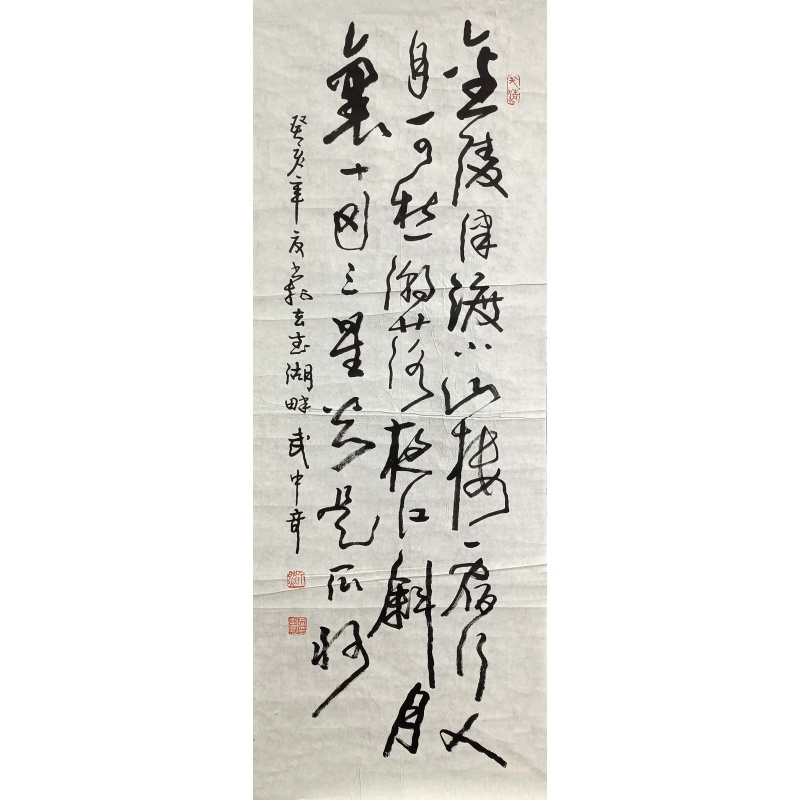 金陵津渡小山楼一宿行人
自可愁潮落夜江斜月
裏两三星火是瓜洲
癸亥年夏书於玄武湖畔武中奇